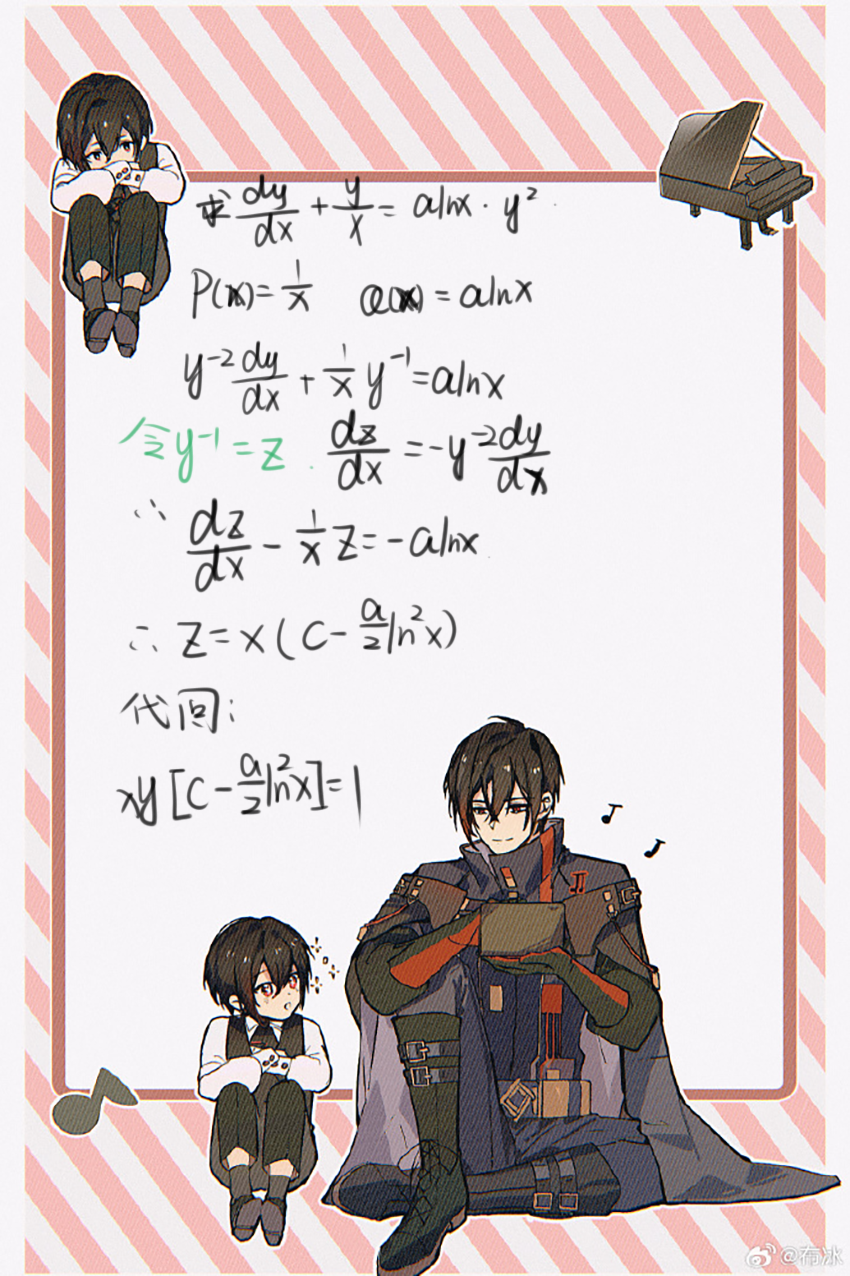 求 dy/dx + y/x = alnx · y²
P(x) = 1/x Q(x) = alnx
y⁻² dy/dx + 1/x y⁻¹ = alnx
令 y⁻¹ = z . dz/dx = -y⁻² dy/dx
∵ dz/dx - 1/x z = -alnx
∴ z = x ( C - a/2 ln²x )
代回:
xy [ C - a/2 ln²x ] = 1
@布冰